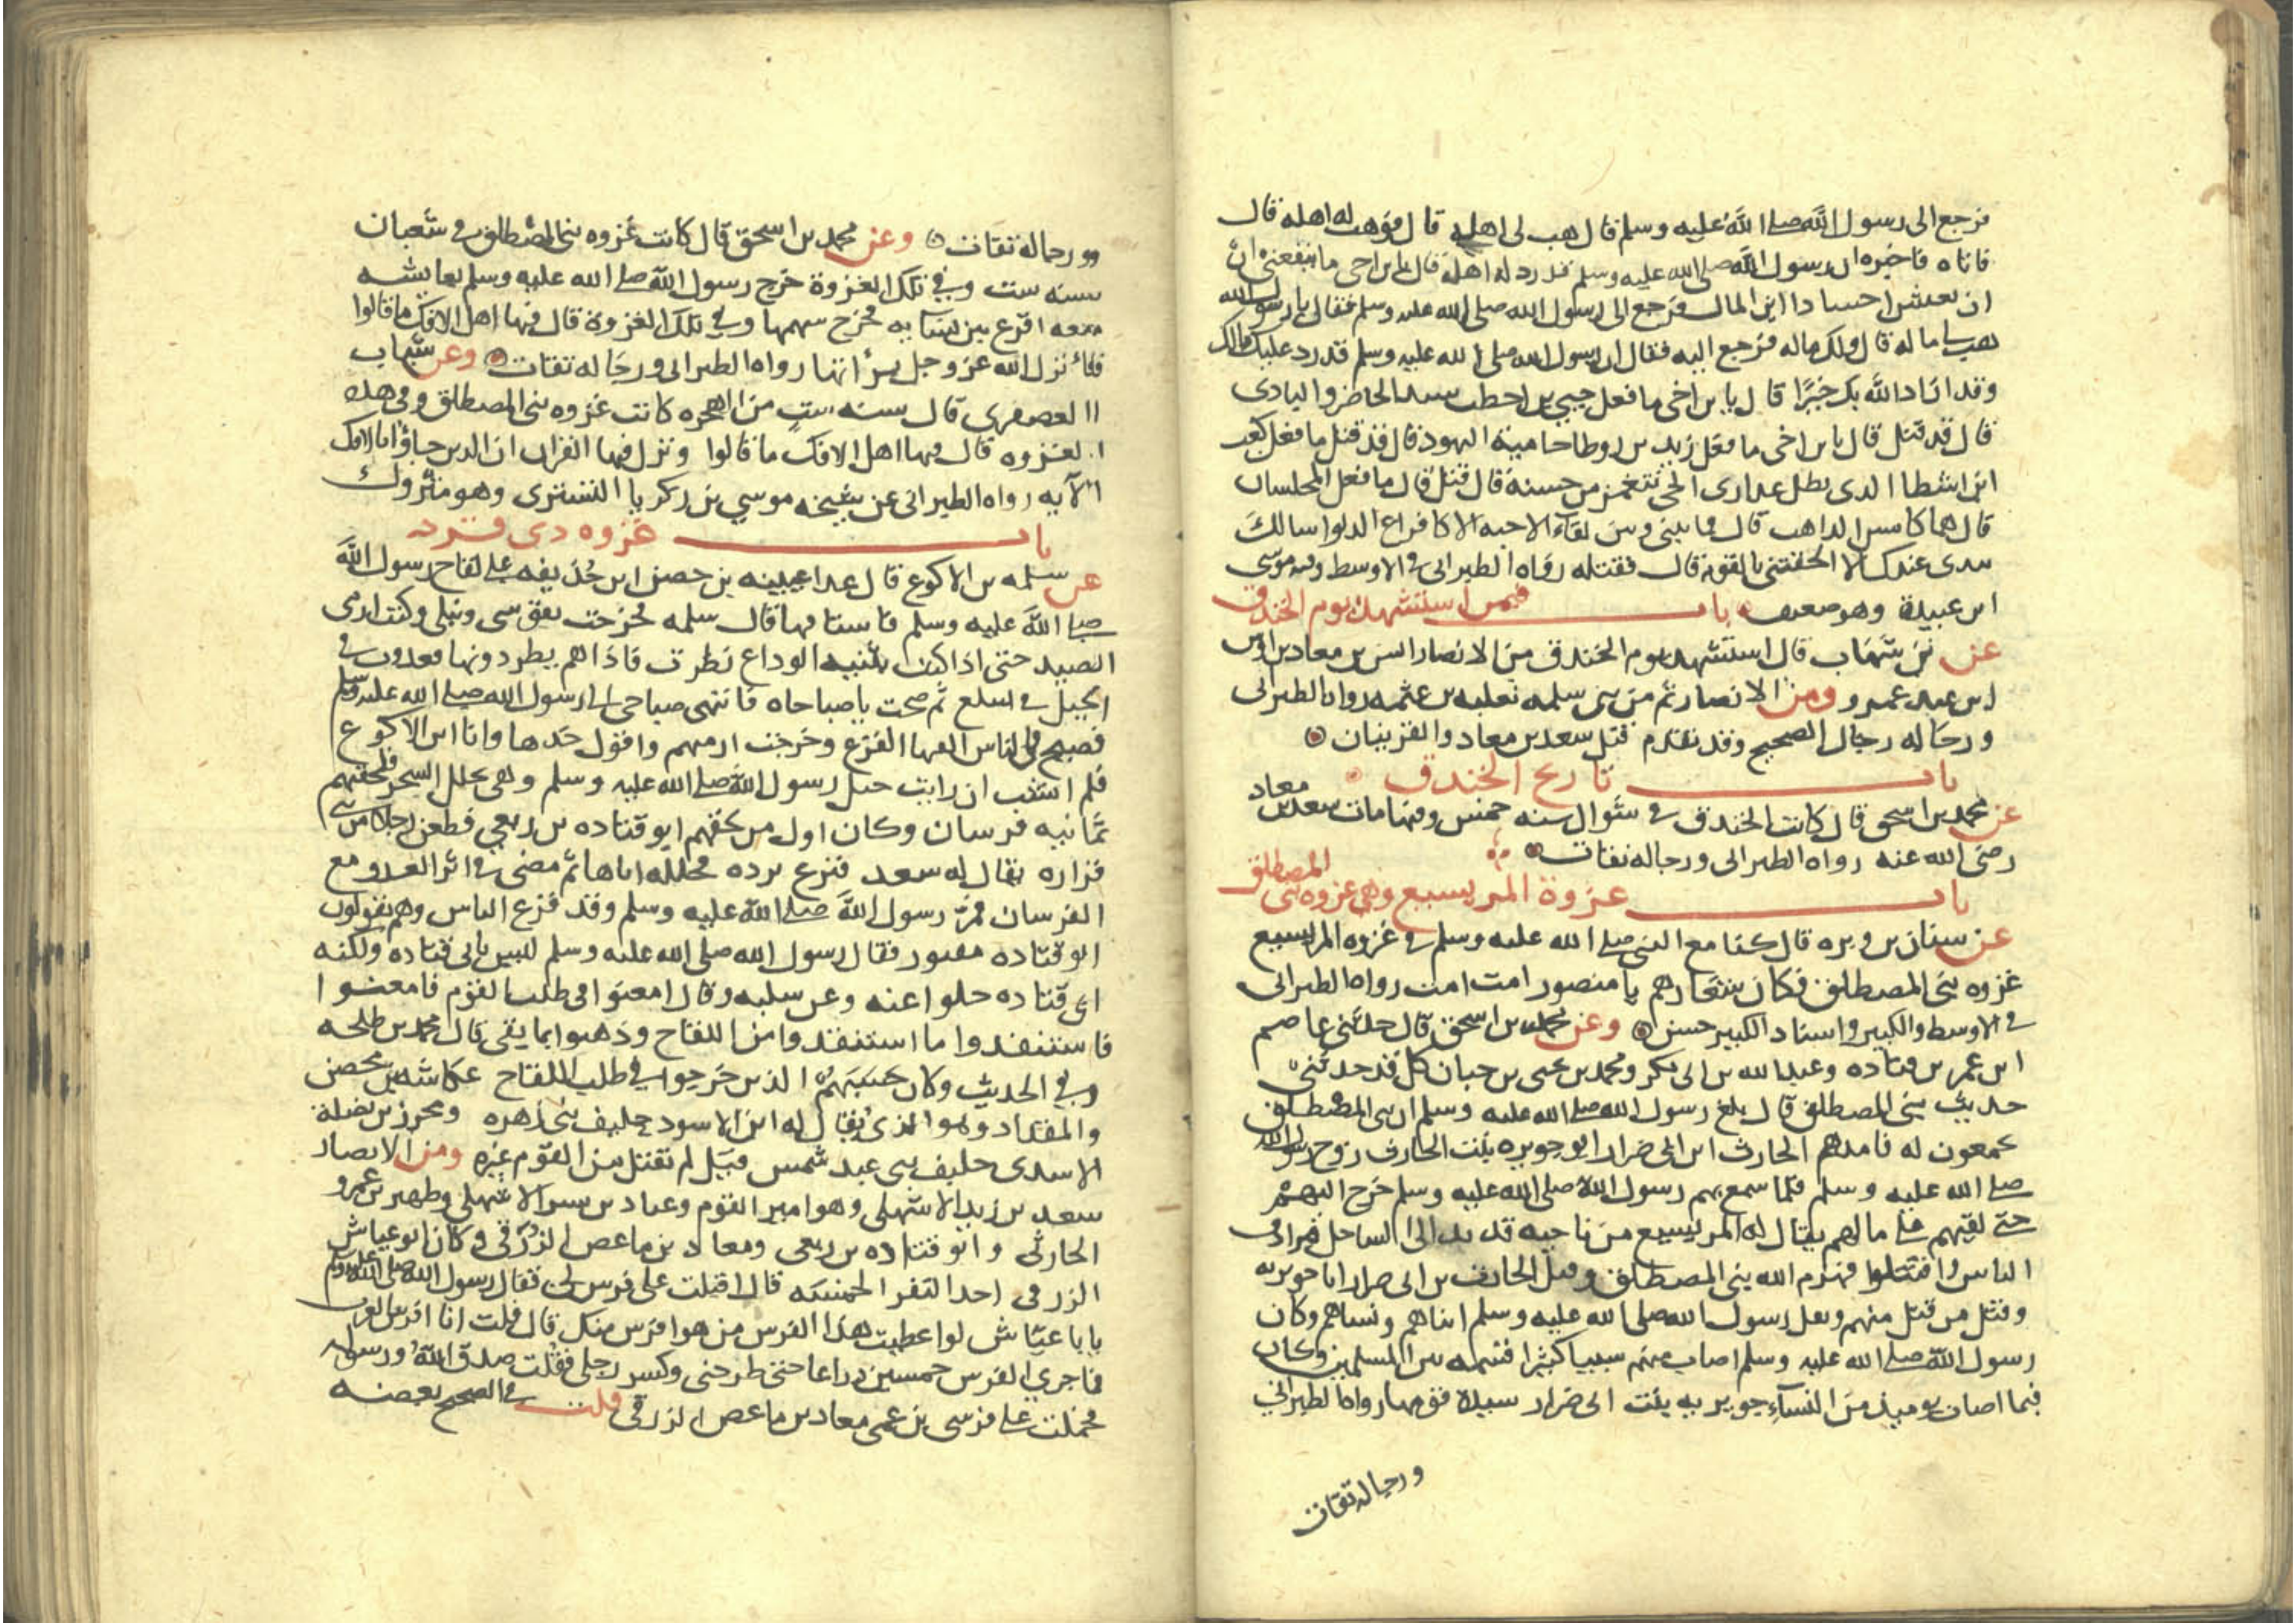 فرجع الى رسول الله صلى الله عليه وسلم قال هب لى اهله قال فوهب له اهله قال
فاتاه فاخبره ان رسول الله صلى الله عليه وسلم قد رد له اهله قال يا بن اخى ما ينفعنى ان
ان نعيش اجسادا اين المال فرجع الى رسول الله صلى الله عليه وسلم فقال يا رسول الله
هب لى ماله قال ولك ماله فرجع اليه فقال ان رسول الله صلى الله عليه وسلم قد رد عليك مالك
وقد اراد الله بك خيرا قال يا بن اخى ما فعل حيى بن اخطب سيد الحاضر والبادى
قال قد قتل قال يا بن اخى ما فعل زيد بن روطا حامية اليهود قال قد قتل ما فعل كعب
ابن اشطا الذى تظل عذارى الحى تتغمز من حسنه قال قتل قال ما فعل المجلسان
قال هما كامس الذاهب قال فما بينى وبين لقاء الاحبه الا كافراغ الدلو اسالك
بيدى عندك الا الحقتنى بالقوم قال فقتله رواه الطبرانى فى الاوسط وفيه موسى
ابن عبيدة وهو ضعيف باب فيمن استشهد يوم الخندق
عن بن شهاب قال استشهد يوم الخندق من الانصار انس بن معاد بن اوس
ابن عبد عمرو ومن الانصار ثم من بنى سلمه ثعلبه بن عثمه رواه الطبرانى
ورجاله رجال الصحيح وقد تقدم قتل سعد بن معاد والقرييان
باب تاريخ الخندق
عن محمد بن اسحق قال كانت الخندق فى شوال سنه خمس وفيها مات سعد بن معاد
رضى الله عنه رواه الطبرانى ورجاله ثقات
باب غزوة المريسيع وهى غزوه بنى المصطلق
عن سنان بن وبره قال كنا مع النبى صلى الله عليه وسلم فى غزوه المريسيع
غزوه بنى المصطلق فكان شعارهم يا منصور امت امت رواه الطبرانى
فى الاوسط والكبير واسناد الكبير حسن وعن محمد بن اسحق قال حدثنى عاصم
ابن عمر بن قتاده وعبد الله بن ابى بكر ومحمد بن يحيى بن حبان كل قد حدثنى
حديث بنى المصطلق قال بلغ رسول الله صلى الله عليه وسلم ان بنى المصطلق
يجمعون له قائدهم الحارث ابن ابى ضرار ابو جويريه بنت الحارث زوج رسول الله
صلى الله عليه وسلم فلما سمع بهم رسول الله صلى الله عليه وسلم خرج اليهم
حتى لقيهم على ما لهم يقال له المريسيع من ناحيه قديد الى الساحل فتزاحف
الناس واقتتلوا فهزم الله بنى المصطلق وقتل الحارث بن ابى ضرار ابا جويريه
وقتل من قتل منهم ونفل رسول الله صلى الله عليه وسلم ابناهم ونساهم وكان
رسول الله صلى الله عليه وسلم اصاب منهم سبيا كثيرا فقسمه بين المسلمين وكان
فيما اصاب يوميذ من النسآء جويريه بنت ابى ضرار سيدة قومها رواه الطبرانى
ورجاله ثقات
ورجاله ثقات وعن محمد بن اسحق قال كانت غزوه بنى المصطلق فى شعبان
سنه ست وفى تلك الغزوة خرج رسول الله صلى الله عليه وسلم بعايشه
معه اقرع بين نسايه فخرج سهمها وفى تلك الغزوة قال فيها اهل الافك ما قالوا
فانزل الله عز وجل برأتها رواه الطبرانى ورجاله ثقات وعن شهاب
العصفرى قال سنه ست من الهجره كانت غزوه بنى المصطلق وفى هذه
الغزوه قال فيها اهل الافك ما قالوا ونزل فيها القران ان الذين جاؤا بالافك
الآيه رواه الطبرانى عن شيخه موسى بن زكريا التسترى وهو متروك
باب غزوه ذى قرد
عن سلمه بن الاكوع قال عدا عيينه بن حصن ابن حذيفه على لقاح رسول الله
صلى الله عليه وسلم فاستاقها قال سلمه فخرجت بقوسى ونبلى وكنت ارمى
الصيد حتى اذا كنت بثنيه الوداع نظرت فاذا هم يطردونها فعدوت فى
الجبل فى سلع ثم صحت يا صباحاه فانتهى صياحى الى رسول الله صلى الله عليه وسلم
فصيح فى الناس الفزع الفزع وخرجت ارميهم واقول خدها وانا ابن الاكوع
فلم انشب ان رايت خيل رسول الله صلى الله عليه وسلم وهى تخلل الشجر فلحقهم
ثمانيه فرسان وكان اول من لحقهم ابو قتاده بن ربعى فطعن رجلا من بنى
فزاره يقال له سعد فنزع برده فجلله اياها ثم مضى فى اثر العدو مع
الفرسان فمر رسول الله صلى الله عليه وسلم وقد فزع الناس وهم يقولون
ابو قتاده مقتول فقال رسول الله صلى الله عليه وسلم ليس بابى قتاده ولكنه
ابى قتاده خلوا عنه وعن سلبه وقال امعنوا فى طلب القوم فامعنوا
فاستنقذوا ما استنقذوا من اللقاح وذهبوا بما بقى قال محمد بن طلحه
وفى الحديث وكان الذين خرجوا فى طلب اللقاح عكاشه بن محصن
والمقداد وهو الذى يقال له ابن الاسود حليف بنى زهره ومحرز بن نضلة
الاسدى حليف بنى عبد شمس قيل لم يقتل من القوم غيره ومن الانصار
سعد بن زيد الاشهلى وهو امير القوم وعباد بن بشر الاشهلى وظهير بن عمرو
الحارثى وابو قتاده بن ربعى ومعاد بن ماعص الزرقى وكان ابو عياش
الزرقى احد النفر الخمسه قال اقبلت على فرس لى فقال رسول الله صلى الله عليه وسلم
يا با عياش لو اعطيت هذا الفرس من هو افرس منك قال قلت انا افرس العرب
فما جرى الفرس خمسين ذراعا حتى طرحنى وكسر رجلى فقلت صدق الله ورسوله
فحملت على فرسى بن عمى معاد بن ماعص الزرقى قلت فى الصحيح بعضه